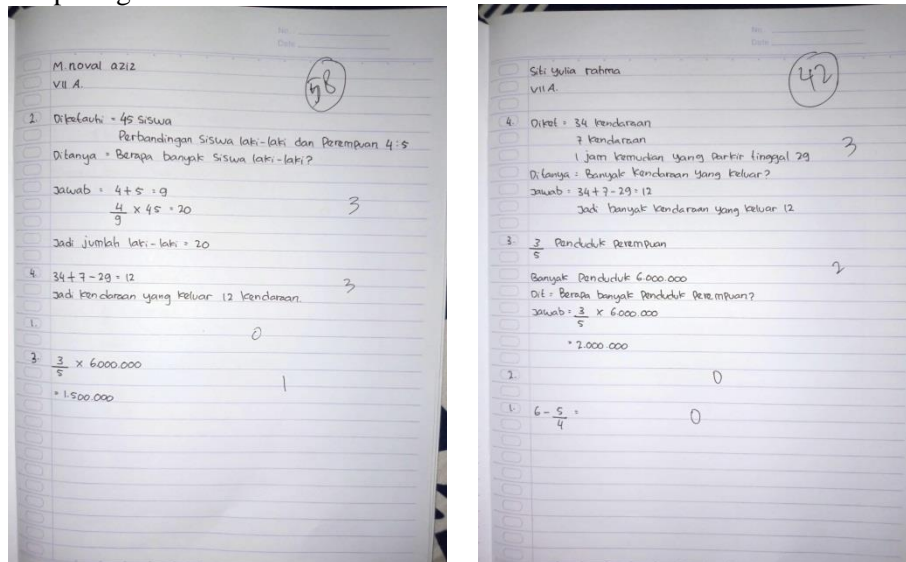 No.
Date
M. noval aziz
VII A.
58
2. Diketauhi = 45 siswa
Perbandingan siswa laki-laki dan Perempuan 4:5
Ditanya = Berapa banyak siswa laki-laki?
Jawab = 4 + 5 = 9
4/9 × 45 = 20
3
Jadi jumlah laki-laki = 20
4. 34 + 7 - 29 = 12
Jadi kendaraan yang keluar 12 kendaraan.
3
1.
0
3. 3/5 × 6000.000
= 1.500.000
1
No.
Date
Siti yulia rahma
VII A.
42
4. Diket = 34 kendaraan
7 kendaraan
1 jam kemudian yang parkir tinggal 29
3
Ditanya = Banyak kendaraan yang keluar?
Jawab = 34 + 7 - 29 = 12
Jadi banyak kendaraan yang keluar 12
3. 3/5 Penduduk perempuan
Banyak Penduduk 6.000.000
2
Dit = Berapa banyak penduduk perempuan?
Jawab = 3/5 × 6.000.000
= 2.000.000
2.
0
1. 6 - 5/4 =
0